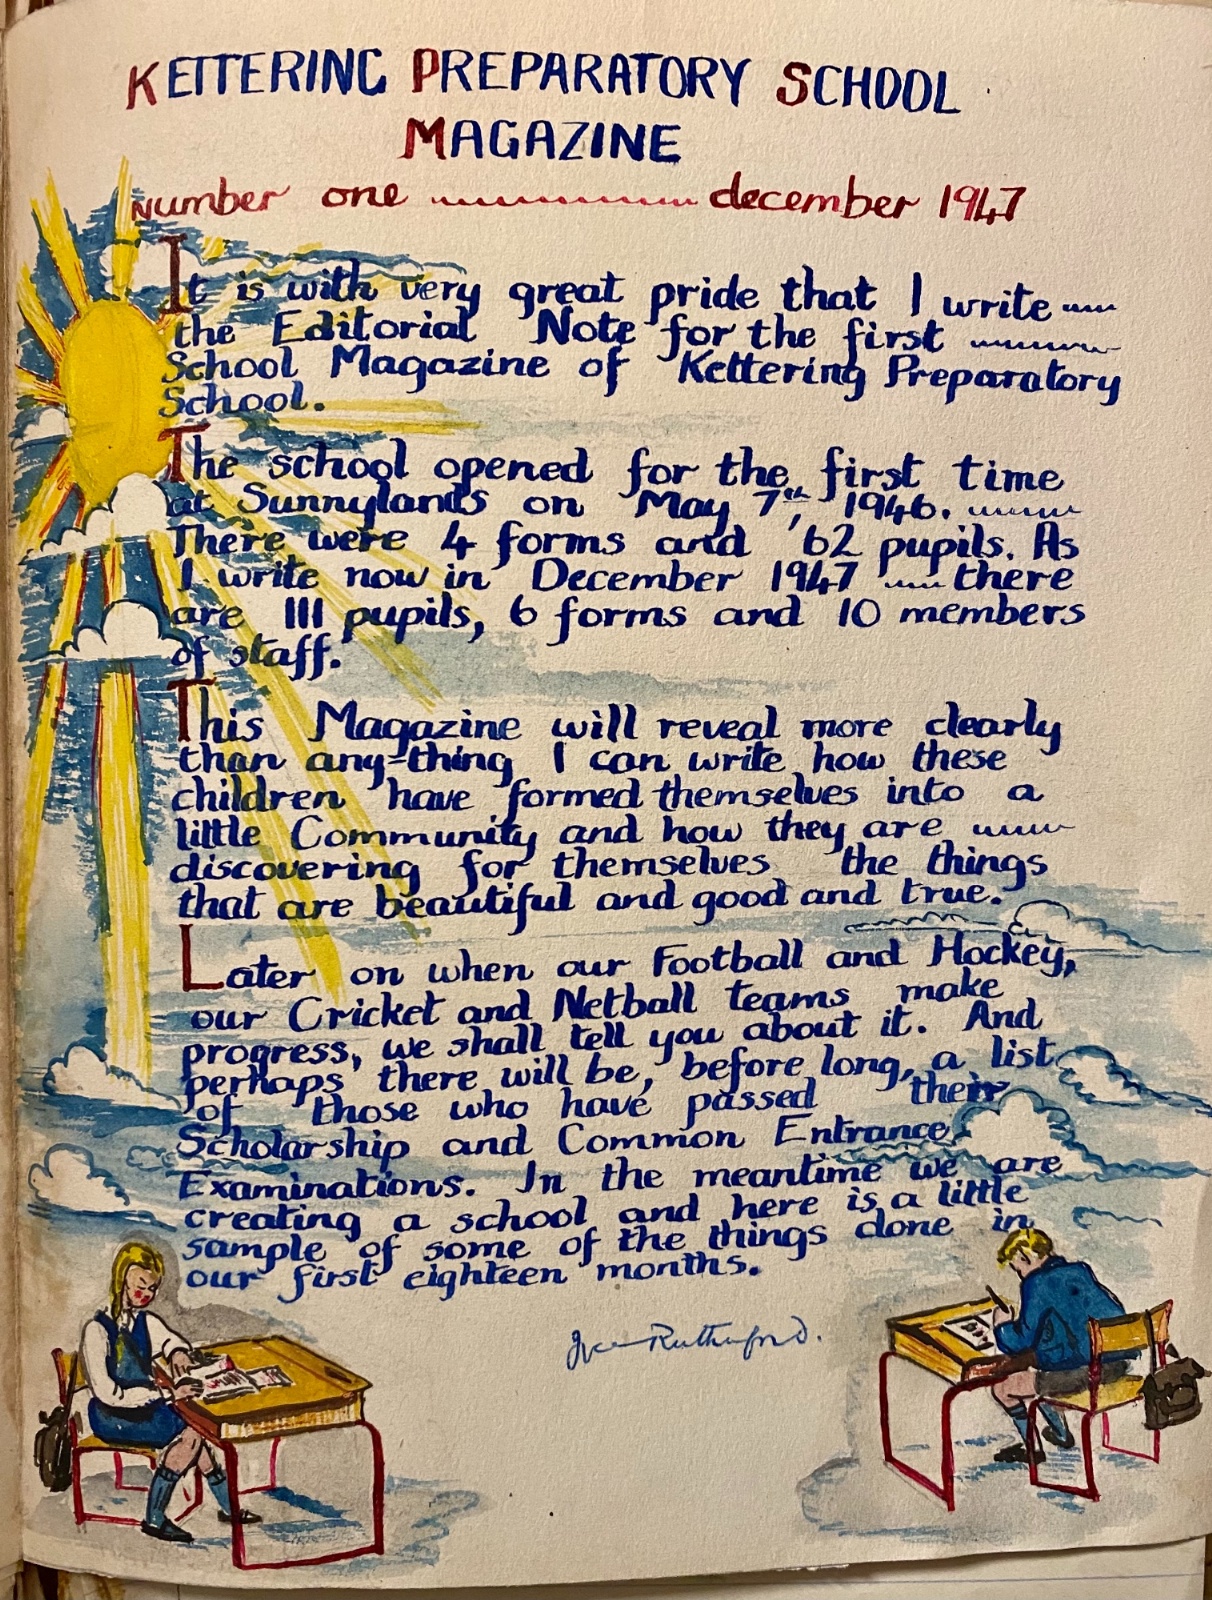 KETTERING PREPARATORY SCHOOL
MAGAZINE
number one december 1947
It is with very great pride that I write
the Editorial Note for the first
School Magazine of Kettering Preparatory
School.
The school opened for the first time
at Sunnylands on May 7th, 1946.
There were 4 forms and 62 pupils. As
I write now in December 1947 there
are 111 pupils, 6 forms and 10 members
of staff.
This Magazine will reveal more clearly
than any-thing I can write how these
children have formed themselves into a
little Community and how they are
discovering for themselves the things
that are beautiful and good and true.
Later on when our Football and Hockey,
our Cricket and Netball teams make
progress, we shall tell you about it. And
perhaps there will be, before long, a list
of those who have passed their
Scholarship and Common Entrance
Examinations. In the meantime we are
creating a school and here is a little
sample of some of the things done in
our first eighteen months.
Rutherford.